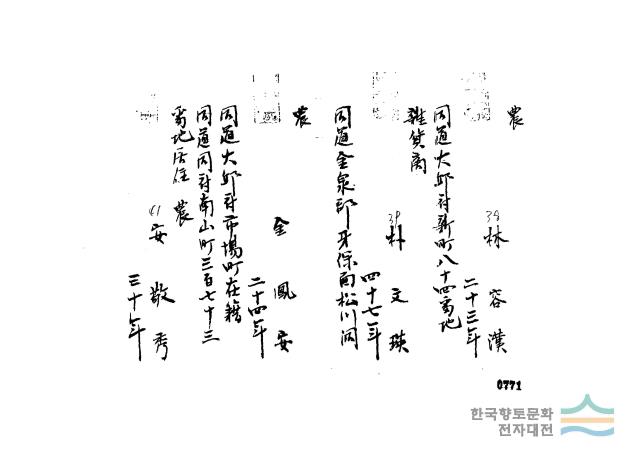 農
38 林容漢
二十三年
同道大邱府新町八十四番地
雜貨商
39 朴文瑛
四十七年
同道金泉郡牙保面松川洞
農
金鳳安
二十四年
同道大邱府市場町在籍
同道同府南山町三百七十三
番地居住 農
41 安敬秀
三十年
0771
한국향토문화
전자대전